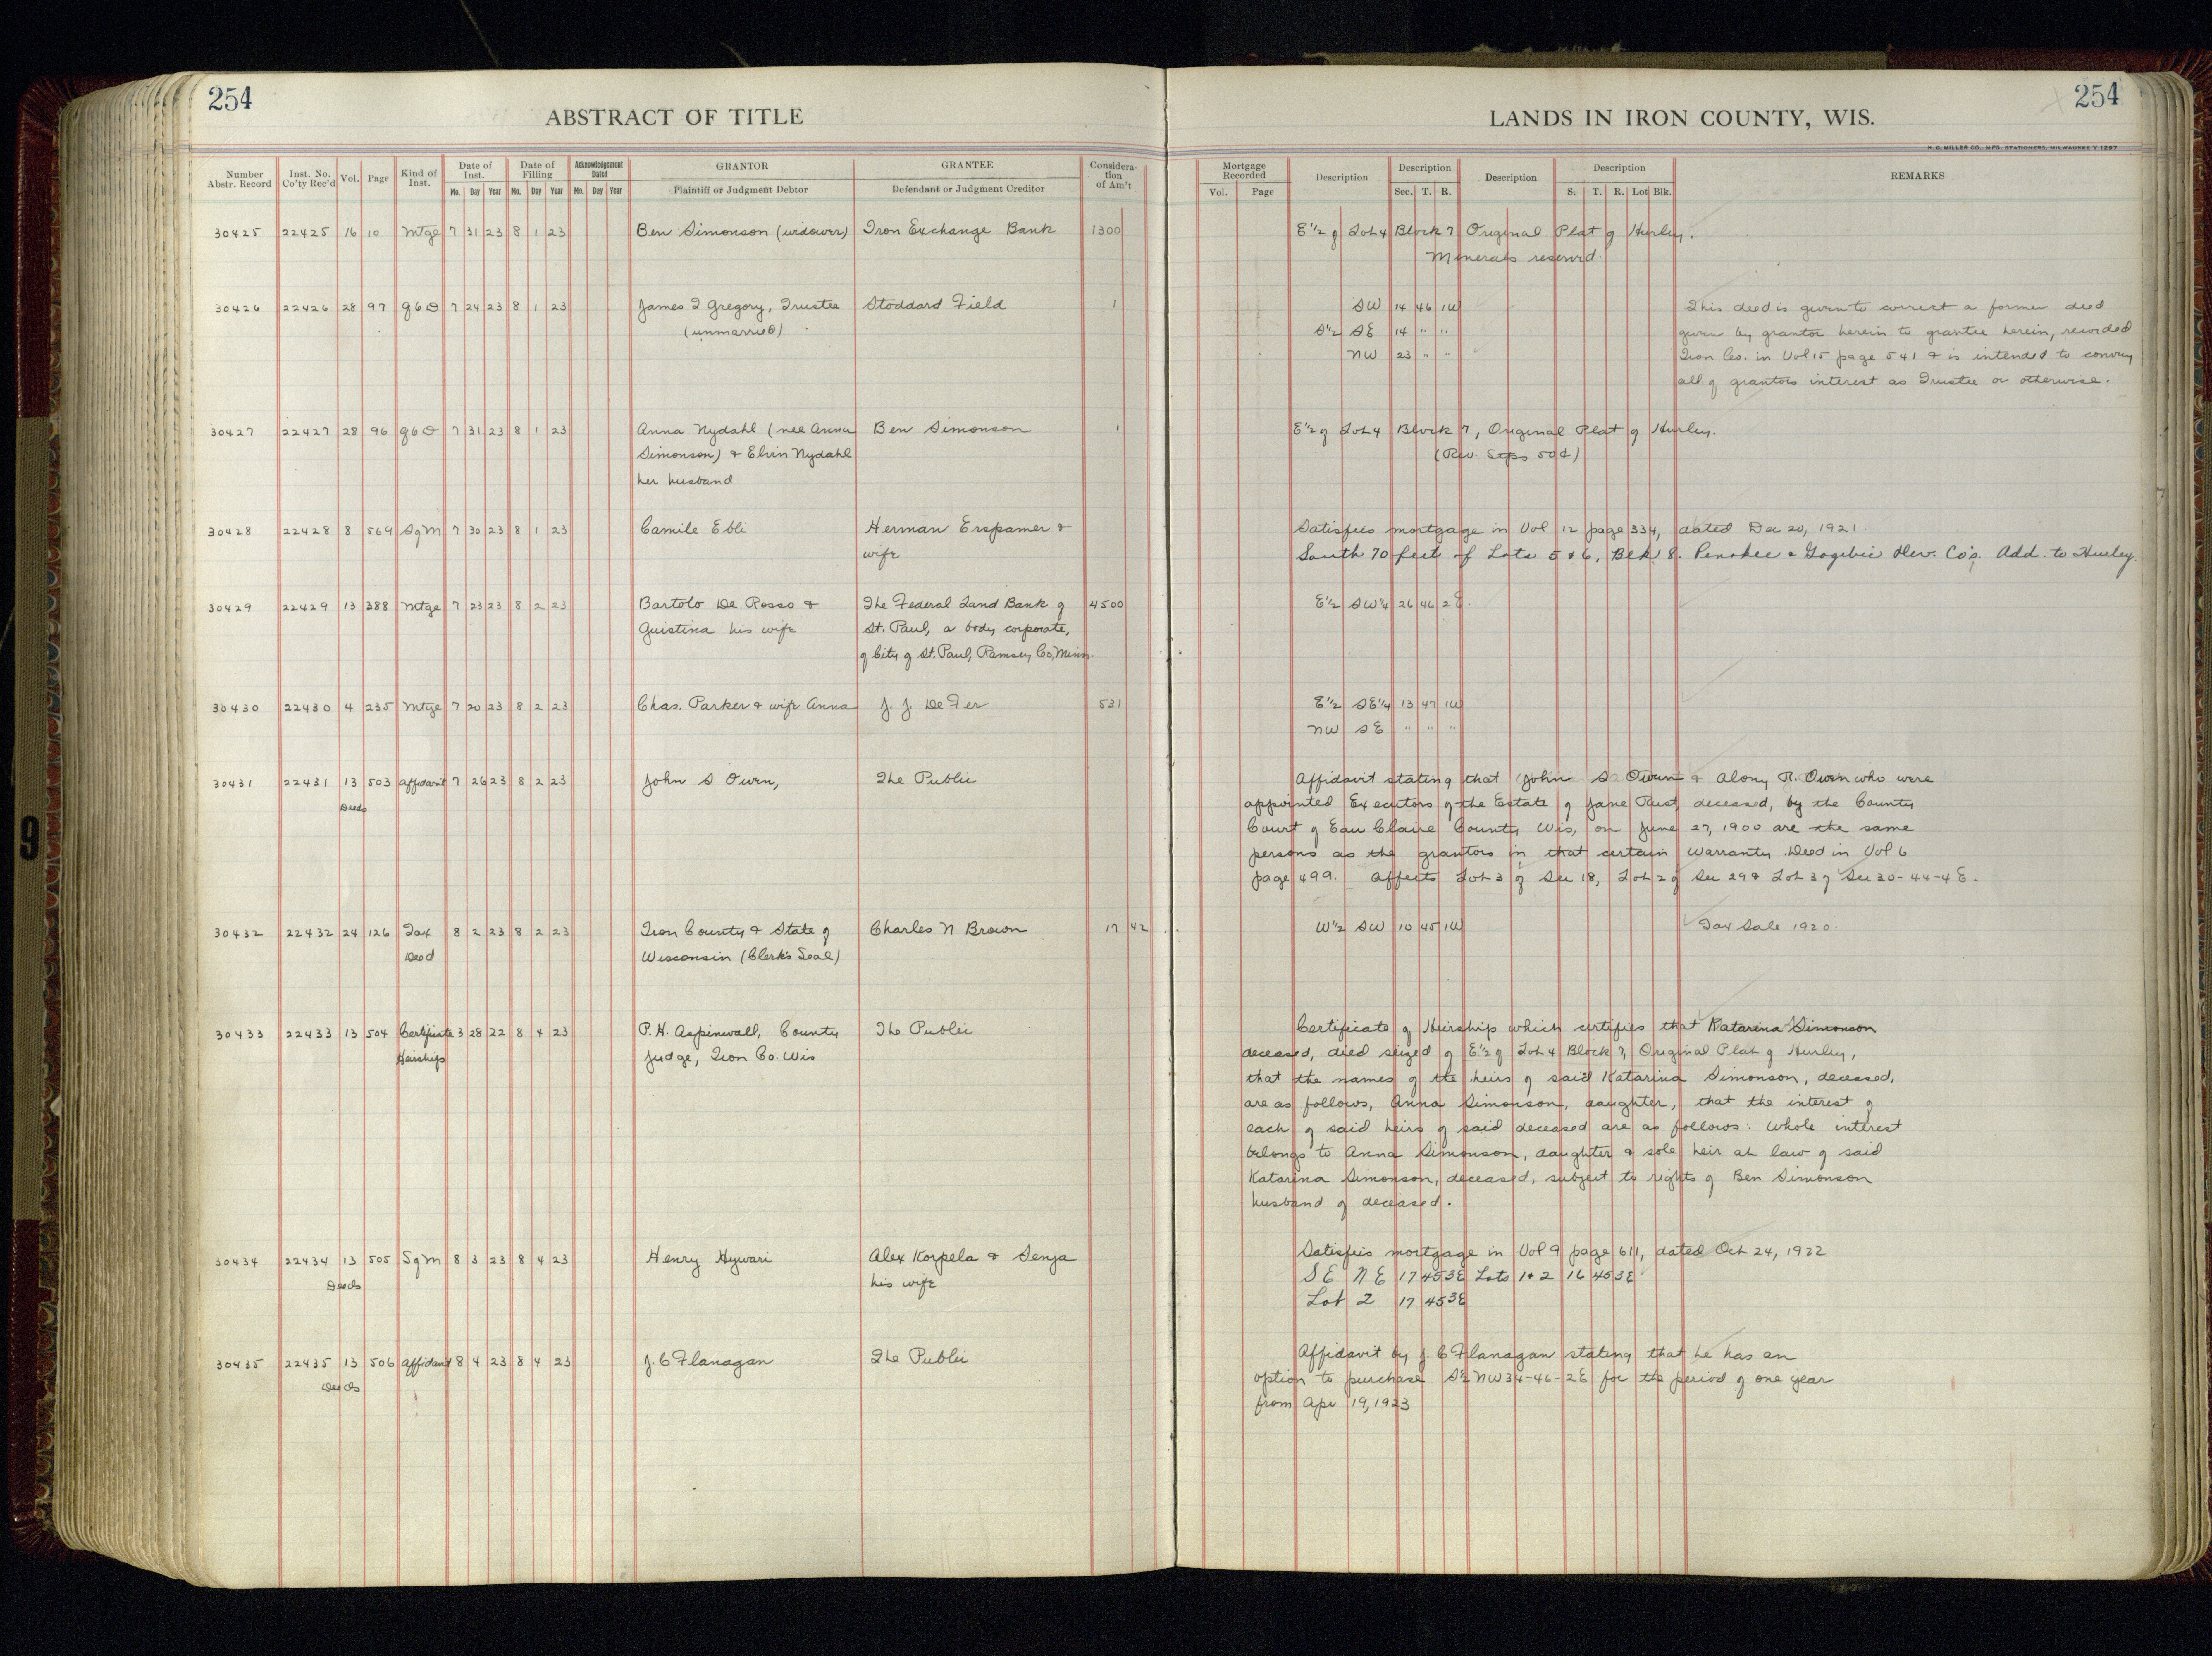 254
ABSTRACT OF TITLE
LANDS IN IRON COUNTY, WIS.
254
H. C. MILLER CO., MFG. STATIONERS, MILWAUKEE
Number Abstr. Record
Inst. No. Co'ty Rec'd
Vol.
Page
Kind of Inst.
Date of Inst.
Mo. Day Year
Date of Filling
Mo. Day Year
Acknowledgement Dated
Mo. Day Year
GRANTOR
Plaintiff or Judgment Debtor
GRANTEE
Defendant or Judgment Creditor
Consideration of Am't
Mortgage Recorded
Vol. Page
Description
Description
Sec. T. R.
Description
Description
S. T. R. Lot Blk.
REMARKS
30425 22425 16 10 Mtge 7 31 23 8 1 23 Ben Simonson (widower) Iron Exchange Bank 1300 E½ of Lot 4 Block 7 Original Plat of Hurley.
Minerals reserved.
30426 22426 28 97 Q C D 7 24 23 8 1 23 James I Gregory, Trustee Stoddard Field 1 SW 14 46 1W This deed is given to correct a former deed
(unmarried) S½ SE 14 " " given by grantor herein to grantee herein, recorded
NW 23 " " Iron Co. in Vol 15 page 541 & is intended to convey
all of grantors interest as Trustee or otherwise.
30427 22427 28 96 Q C D 7 31 23 8 1 23 Anna Nydahl (nee Anna Ben Simonson 1 E½ of Lot 4 Block 7, Original Plat of Hurley.
Simonson) & Elvin Nydahl (Rev. Stps 50¢)
her husband
30428 22428 8 569 S of M 7 30 23 8 1 23 Camile Ebli Herman Erspamer & Satisfies mortgage in Vol 12 page 334, dated Dec 20, 1921
wife South 70 feet of Lots 5 & 6, Blk 8. Penokee & Gogebic Dev. Co's. Add. to Hurley.
30429 22429 13 388 Mtge 7 23 23 8 2 23 Bartolo De Rosso & The Federal Land Bank of 4500 E½ SW¼ 26 46 2E.
Guistina his wife St. Paul, a body corporate,
of City of St. Paul, Ramsey Co, Minn.
30430 22430 4 235 Mtge 7 20 23 8 2 23 Chas. Parker & wife Anna J. J. De Fer 531 E½ SE¼ 13 47 1W
NW SE " " "
30431 22431 13 503 Affidavit 7 26 23 8 2 23 John S Owen, The Public Affidavit stating that John S Owen & Alony R. Owen who were
Deeds appointed Executors of the Estate of Jane Rust, deceased, by the County
Court of Eau Claire County Wis, on June 27, 1900 are the same
persons as the grantors in that certain Warranty Deed in Vol 6
page 499. Affects Lot 3 of Sec 18, Lot 2 of Sec 29 & Lot 3 of Sec 30-44-4E.
30432 22432 24 126 Tax 8 2 23 8 2 23 Iron County & State of Charles N Brown 17 42 W½ SW 10 45 1W Tax Sale 1920.
Deed Wisconsin (Clerk's Seal)
30433 22433 13 504 Certificate 3 28 22 8 4 23 P. H. Aspinwall, County The Public Certificate of Heirship which certifies that Katarina Simonson
Heirship Judge, Iron Co. Wis deceased, died seized of E½ of Lot 4 Block 7, Original Plat of Hurley,
that the names of the heirs of said Katarina Simonson, deceased,
are as follows, Anna Simonson, daughter, that the interest of
each of said heirs of said deceased are as follows: Whole interest
belongs to Anna Simonson, daughter & sole heir at law of said
Katarina Simonson, deceased, subject to rights of Ben Simonson
husband of deceased.
30434 22434 13 505 S of M 8 3 23 8 4 23 Henry Hywari Alex Korpela & Senja Satisfies mortgage in Vol 9 page 611, dated Oct 24, 1922
Deeds his wife SE NE 17 45 3E Lots 1 & 2 16 45 3E
Lot 2 17 45 3E
30435 22435 13 506 Affidavit 8 4 23 8 4 23 J. C Flanagan The Public Affidavit by J. C Flanagan stating that he has an
Deeds option to purchase S½ NW 34-46-2E for the period of one year
from Apr 19, 1923
9